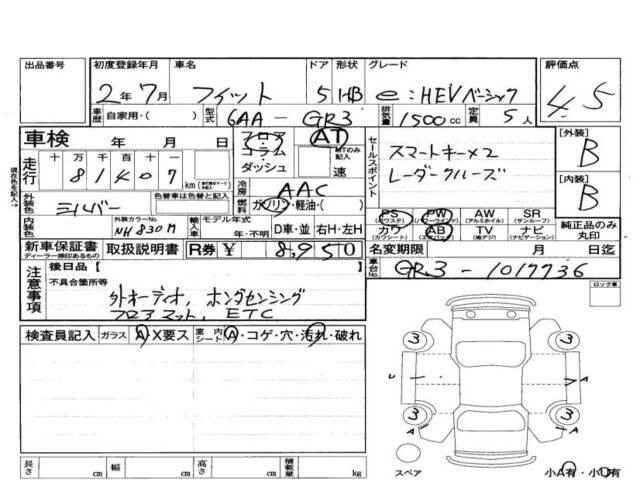 出品番号 初度登録年月 車名 ドア 形状 グレード 評価点
2年7月 フィット 5 HB e:HEVベーシック 4.5
車歴 自家用・( ) 型式 6AA - GR3 排気量 1500cc 定員 5人
車検 年 月 日 フロア コラム ダッシュ AT MTのみ記入 速
走行 十万千百十 81407 km
現在色を記入→
外装色 シルバー 色替車は色替と記入
冷房 AAC
燃料 ガソリン・軽油・( )
内装色 外装カラーNo. NH830M 輸入車 モデル年式 年・不明 D車・並 右H・左H
新車保証書 ディーラー捺印あるもの 取扱説明書 R券 ¥ 8,950
セールスポイント
スマートキー×2
レーダークルーズ
[外装] B
[内装] B
PS (パワステ) PW (パワーウインド) AW (アルミホイル) SR (サンルーフ) 純正品のみ丸印
カワ (カワシート) AB (エアバック) TV (地デジ) ナビ (ナビゲーション)
名変期限 月 日迄
車台No. GR3-1017736
ロック車
注意事項
後日品【 】
不具合箇所等
外オーディオ, ホンダセンシング
フロアマット, ETC
検査員記入 ガラス A・X要ス 室内シート A・コゲ・穴・汚れ・破れ
3 3
U A
3 3
A A
スペア 小A有・小U有
長さ cm 幅 cm 高さ cm 積載量 kg